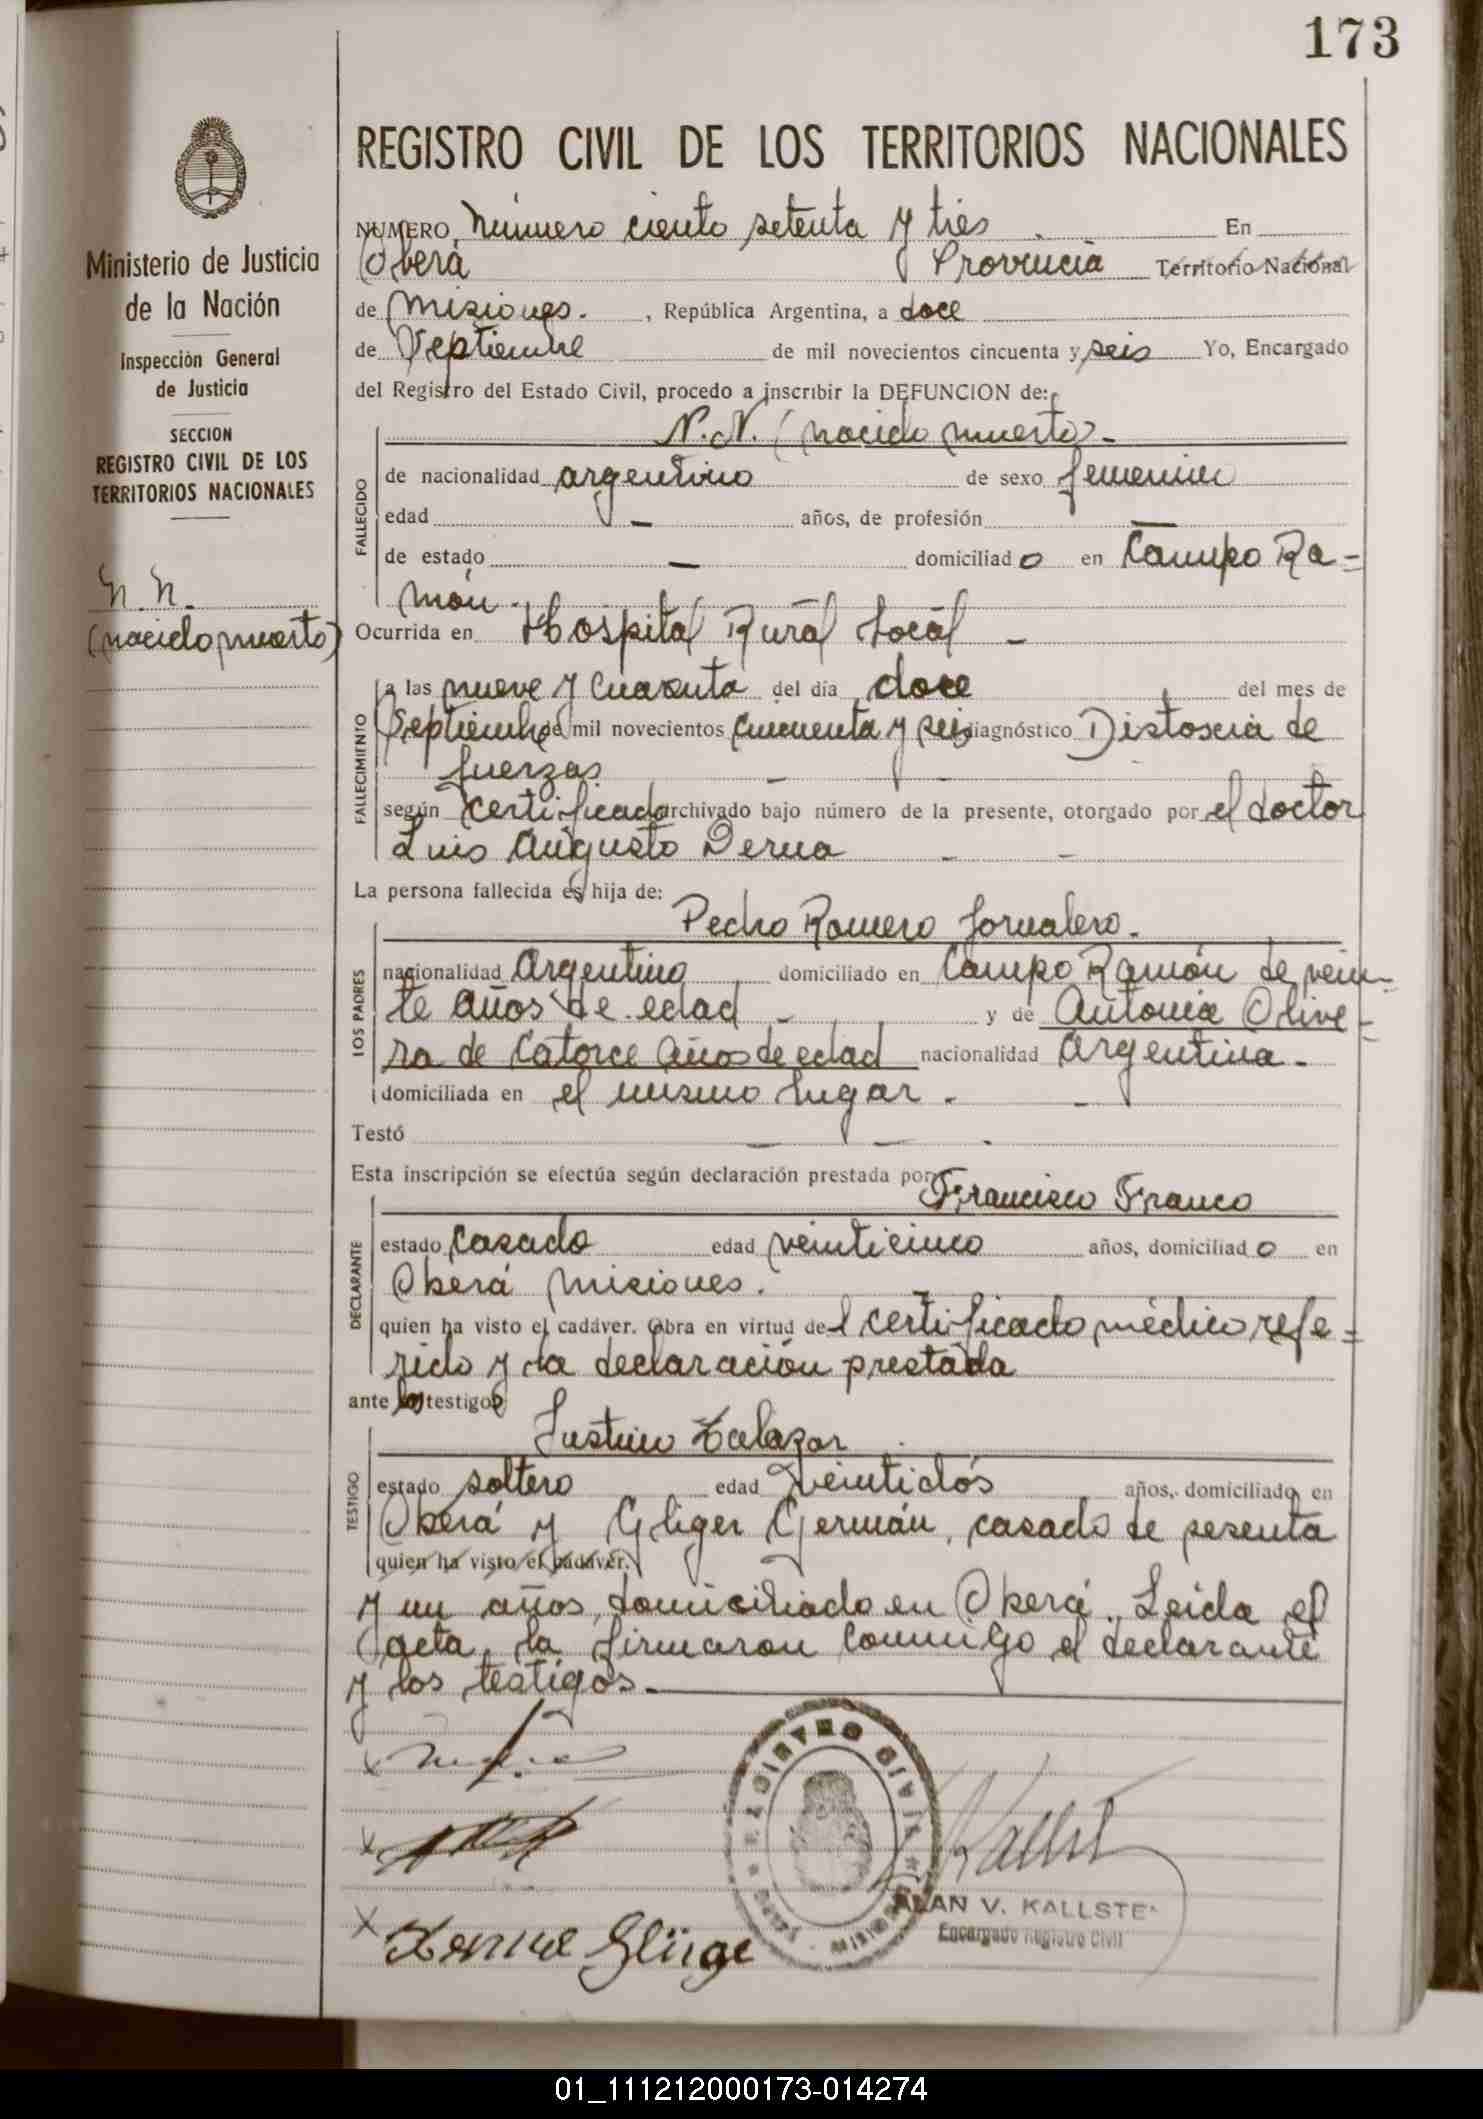 173
REGISTRO CIVIL DE LOS TERRITORIOS NACIONALES
Ministerio de Justicia
de la Nación
Inspección General
de Justicia
SECCION
REGISTRO CIVIL DE LOS
TERRITORIOS NACIONALES
N. N.
(nacido muerto)
NUMERO Número ciento setenta y tres. En
Oberá Provincia Territorio Nacional
de Misiones. , República Argentina, a doce
de Septiembre de mil novecientos cincuenta y seis Yo, Encargado
del Registro del Estado Civil, procedo a inscribir la DEFUNCION de:
N.N. (nacido muerto).-
FALLECIDO
de nacionalidad argentino de sexo femenino
edad - años, de profesión -
de estado - domiciliado en Campo Ra=
món.
Ocurrida en Hospital Rural Local -
FALLECIMIENTO
a las nueve y cuarenta del día doce del mes de
Septiembre de mil novecientos cincuenta y seis diagnóstico Distosia de
fuerzas - -
según certificado archivado bajo número de la presente, otorgado por el doctor
Luis Augusto Derna - -
La persona fallecida es hija de:
Pedro Romero Jornalero.
LOS PADRES
nacionalidad Argentino domiciliado en Campo Ramón de vein-
te años de edad - y de Antonia Olive=
ra de Catorce años de edad nacionalidad Argentina.-
domiciliada en el mismo lugar. -
Testó - - .
Esta inscripción se efectúa según declaración prestada por Francisco Franco
DECLARANTE
estado casado edad veinticinco años, domiciliado en
Oberá Misiones.
quien ha visto el cadáver. Obra en virtud del certificado médico refe=
rido y la declaración prestada
ante los testigos
Justino Salazar
TESTIGO
estado soltero edad veintidós años, domiciliado en
Oberá y Gliger Germán, casado de sesenta
quien ha visto el cadáver.
y un años, domiciliado en Oberá. Leida el
acta, la firmaron conmigo el declarante
y los testigos.-
x
x
x Glüge
REGISTRO CIVIL
Kallst
ALAN V. KALLSTE
Encargado Registro Civil
01_111212000173-014274